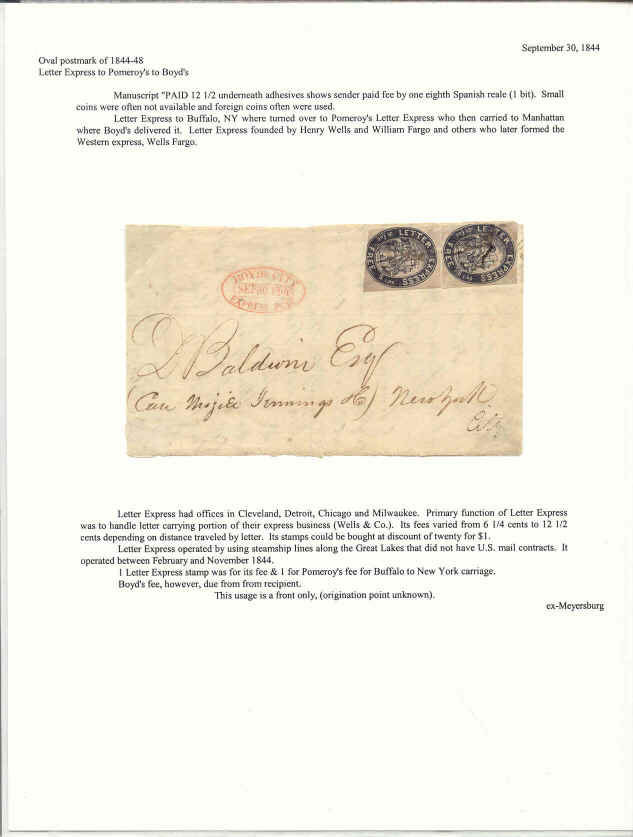 September 30, 1844
Oval postmark of 1844-48
Letter Express to Pomeroy's to Boyd's
Manuscript "PAID 12 1/2 underneath adhesives shows sender paid fee by one eighth Spanish reale (1 bit).  Small
coins were often not available and foreign coins often were used.
Letter Express to Buffalo, NY where turned over to Pomeroy's Letter Express who then carried to Manhattan
where Boyd's delivered it.  Letter Express founded by Henry Wells and William Fargo and others who later formed the
Western express, Wells Fargo.
FREE LETTER EXPRESS
FREE LETTER EXPRESS
BOYD'S CITY
SEP 30
EXPRESS POST
D Baldwin Esq
(Care Jennings) New York
City
Letter Express had offices in Cleveland, Detroit, Chicago and Milwaukee.  Primary function of Letter Express
was to handle letter carrying portion of their express business (Wells & Co.).  Its fees varied from 6 1/4 cents to 12 1/2
cents depending on distance traveled by letter.  Its stamps could be bought at discount of twenty for $1.
Letter Express operated by using steamship lines along the Great Lakes that did not have U.S. mail contracts.  It
operated between February and November 1844.
1 Letter Express stamp was for its fee & 1 for Pomeroy's fee for Buffalo to New York carriage.
Boyd's fee, however, due from from recipient.
This usage is a front only, (origination point unknown).
ex-Meyersburg